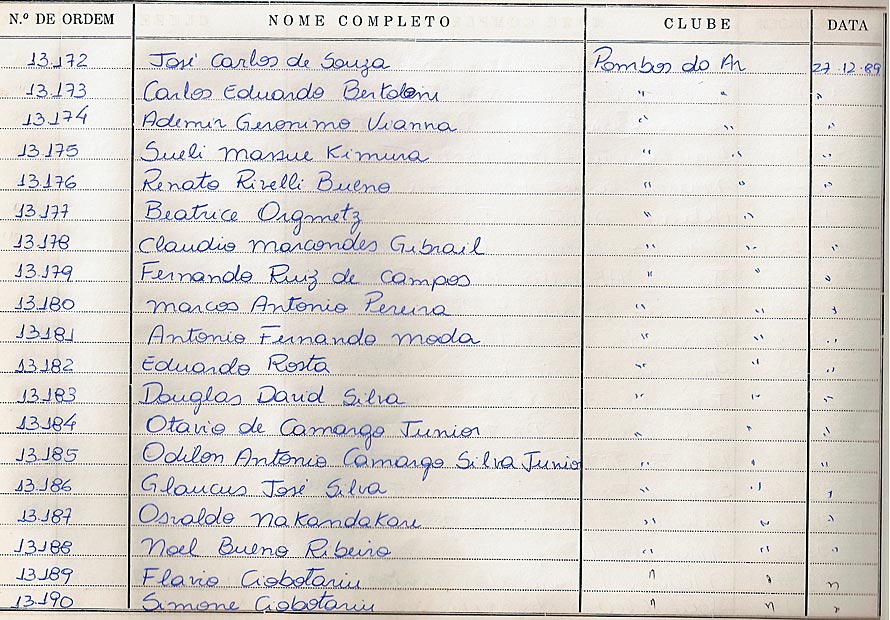 N.º DE ORDEM NOME COMPLETO CLUBE DATA
13.172 José Carlos de Souza Pombos do Ar 27.12.89
13.173 Carlos Eduardo Bertoloni " " "
13.174 Ademir Geronimo Vianna " " "
13.175 Sueli Massue Kimura " " "
13.176 Renato Rivelli Bueno " " "
13.177 Beatrice Orgmetz " " "
13.178 Claudio Marcondes Gibrail " " "
13.179 Fernando Ruiz de Campos " " "
13.180 Marcos Antonio Pereira " " "
13.181 Antonio Fernando Moda " " "
13.182 Eduardo Rosta " " "
13.183 Douglas David Silva " " "
13.184 Otavio de Camargo Junior " " "
13.185 Odilon Antonio Camargo Silva Junior " " "
13.186 Glaucus José Silva " " "
13.187 Osvaldo Nakandakari " " "
13.188 Noel Bueno Ribeiro " " "
13.189 Flavio Ciobotariu " " "
13.190 Simone Ciobotariu " " "